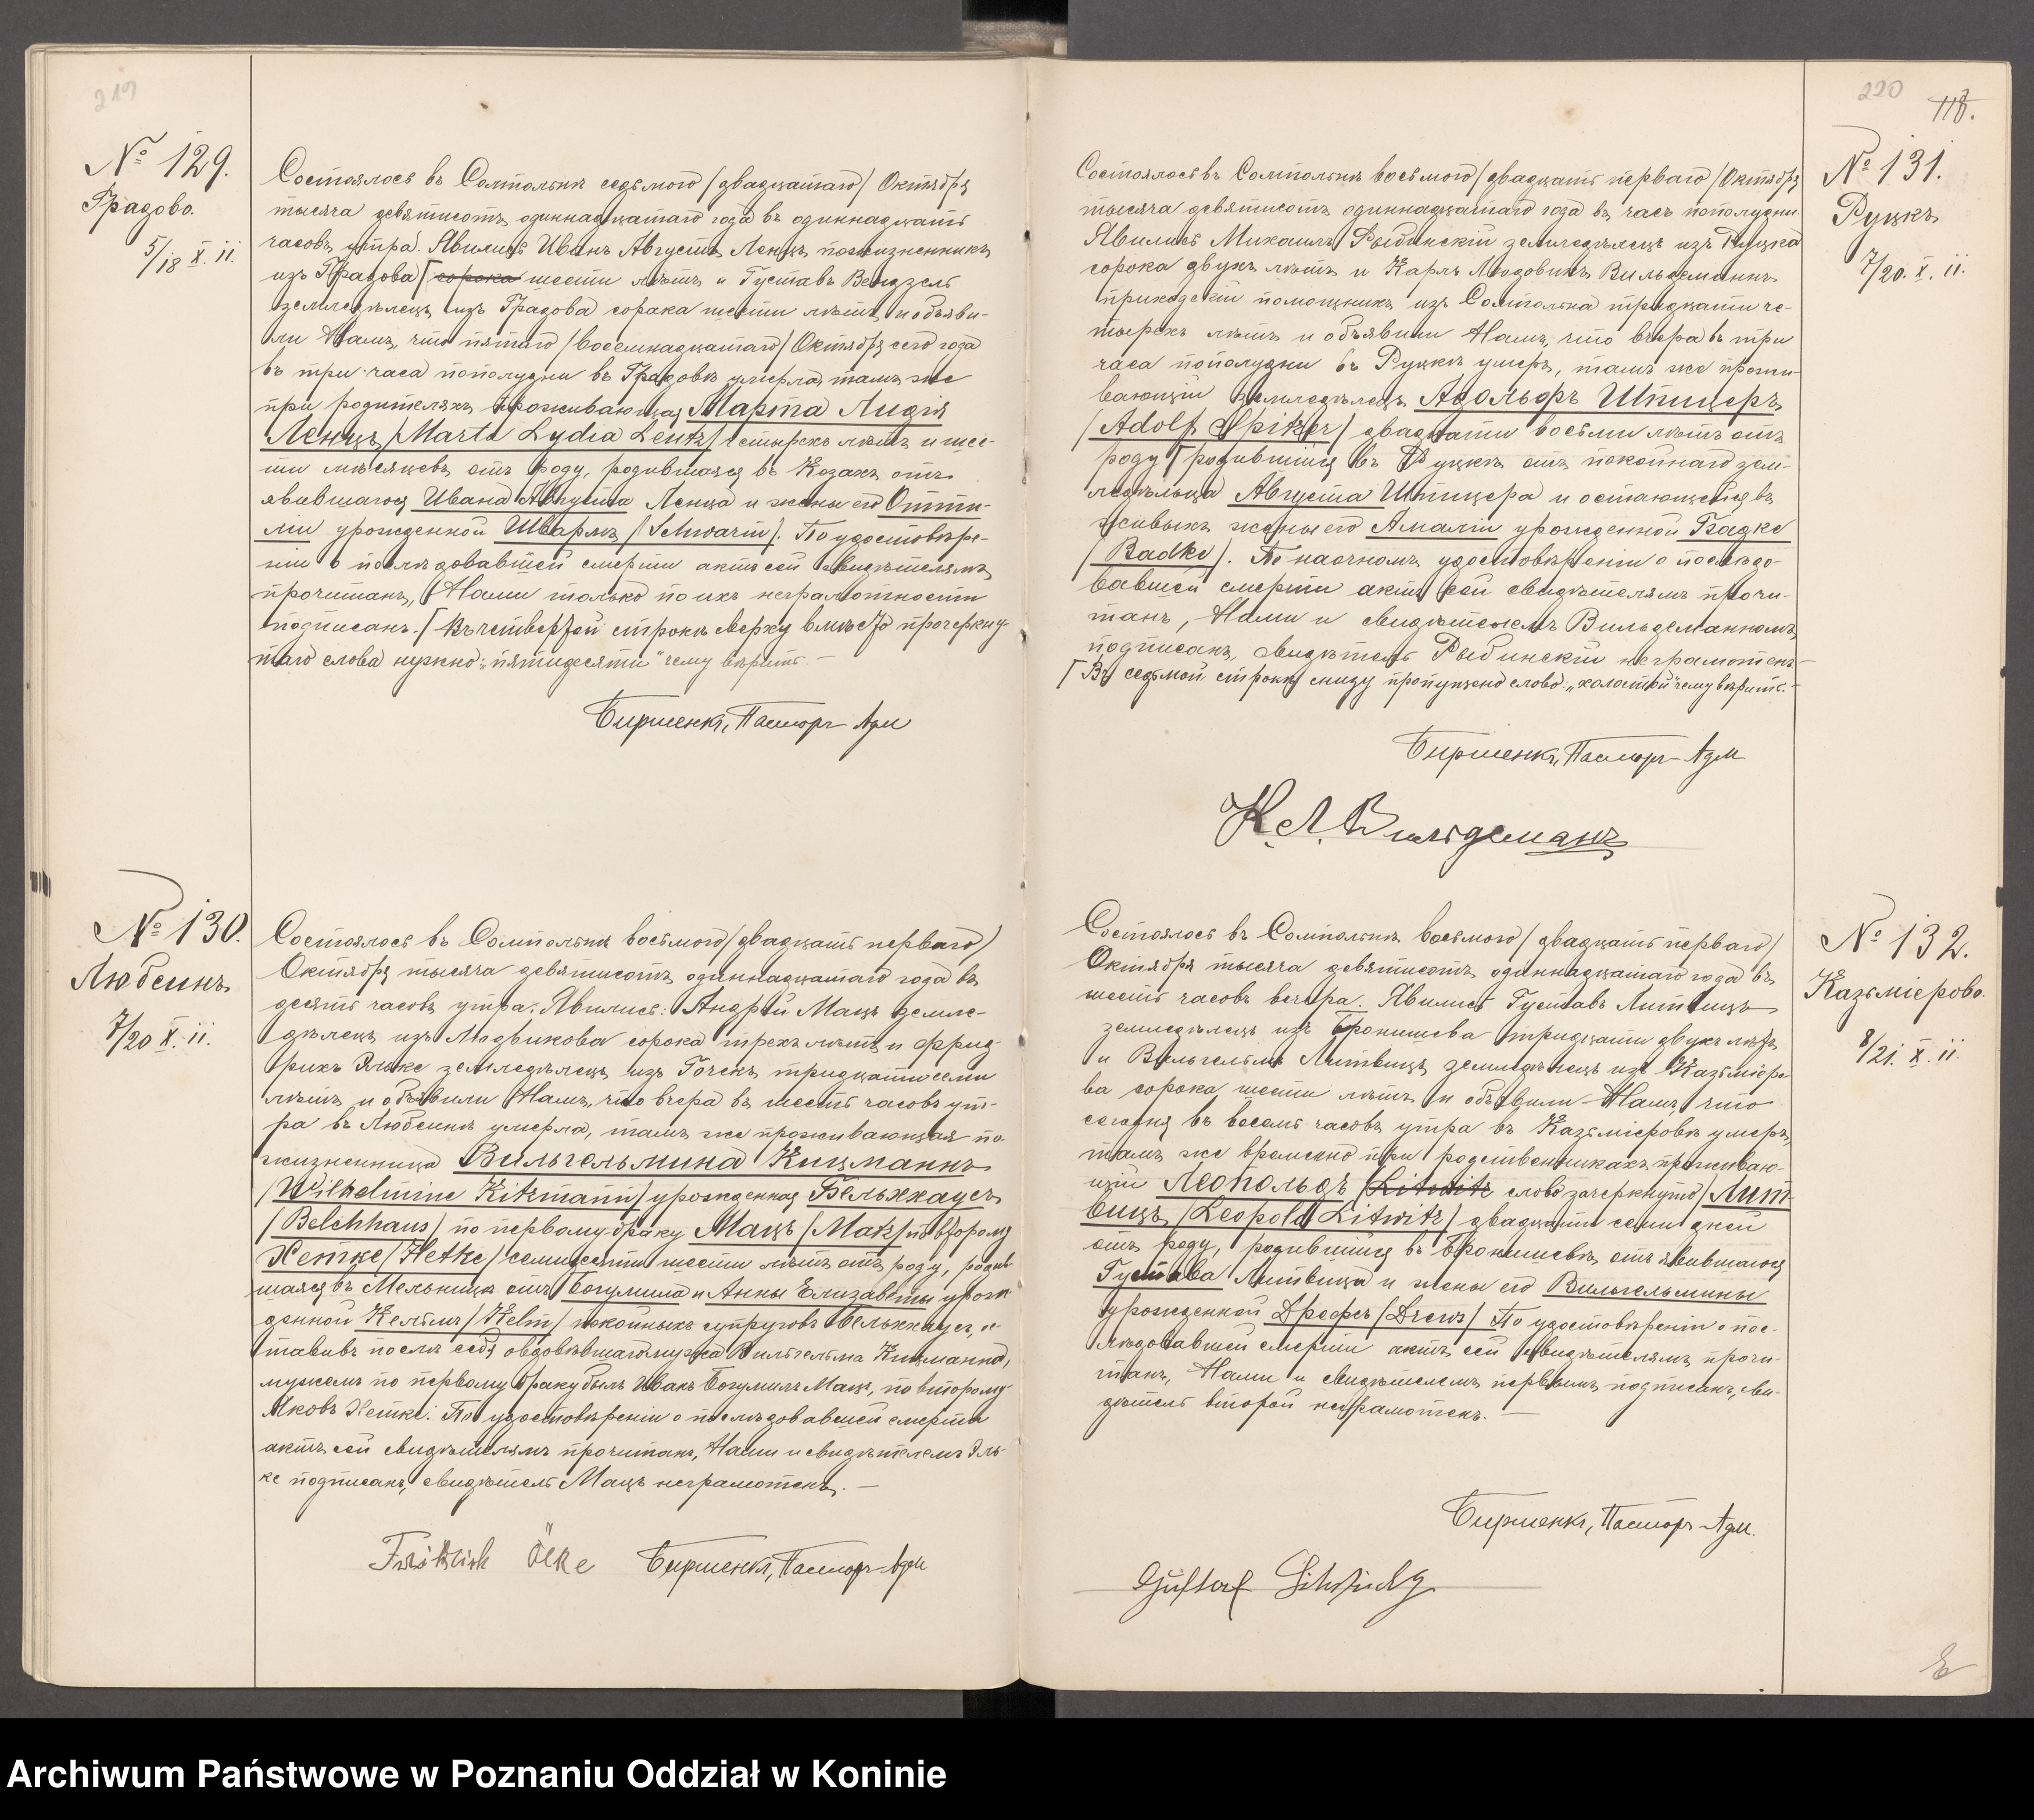 219
№ 129.
Градово.
5/18 X. 11.
Состоялось въ Сомпольнѣ седьмого /двадцатаго/ Октября
тысяча девятисотъ одиннадцатаго года въ одиннадцать
часовъ утра. Явились Иванъ Августъ Ленцъ пожизненникъ
изъ Градова ⌈ сорока шести лѣтъ и Густавъ Вендзель
земледѣлецъ изъ Градова сорока шести лѣтъ, и объяви-
ли Намъ, что пятаго /восемнадцатаго/ Октября сего года
въ три часа пополудни въ Градовѣ умерла, тамъ же
при родителяхъ проживающая Марта Лидія
Ленцъ /Marta Lydia Lentz/ четырехъ лѣтъ и шес-
ти мѣсяцевъ отъ роду, родившаяся въ Козахъ отъ
явившагося Ивана Августа Ленца и жены его Отти-
ліи урожденной Швармъ /Schwarm/. По удостовѣре-
ніи о послѣдовавшей смерти актъ сей свидѣтелямъ
прочитанъ, Нами только по ихъ неграмотности
подписанъ. ⌈ Въ четвертой строкѣ сверху вмѣсто прочеркну-
таго слова нужно: „пятидесяти" чему вѣрить. —
Биршенкъ, Пасторъ-Адм
№ 130.
Любсинъ
7/20 X. 11.
Состоялось въ Сомпольнѣ восьмого /двадцать перваго/
Октября тысяча девятисотъ одиннадцатаго года въ
десять часовъ утра. Явились: Андрей Мацъ земле-
дѣлецъ изъ Людвикова сорока трехъ лѣтъ и Фрид-
рихъ Эльке земледѣлецъ изъ Гочекъ тридцати семи
лѣтъ и объявили Намъ, что вчера въ шесть часовъ ут-
ра въ Любсинѣ умерла, тамъ же проживающая по-
жизненница Вильгельмина Кицманнъ
/Wilhelmine Kitzmann/ урожденная Бельхгаусъ
/Belchhaus/ по первому браку Мацъ /Matz/ по второму
Хетке /Hetke/ семидесяти шести лѣтъ отъ роду, родив-
шаяся въ Мельникѣ отъ Богумила и Анны Елизаветы урож-
денной Кельмъ /Kelm/ покойныхъ супруговъ Бельхгаусъ, ос-
тавивъ послѣ себя овдовѣвшаго мужа Вильгельма Кицманна,
мужемъ по первому браку былъ Иванъ Богумилъ Мацъ, по второму
Яковъ Хетке. По удостовѣреніи о послѣдовавшей смерти
актъ сей свидѣтелямъ прочитанъ, Нами и свидѣтелемъ Эль-
ке подписанъ, свидѣтель Мацъ неграмотенъ. —
Fridrich Ölke Биршенкъ, Пасторъ-Адм
220
118.
№ 131.
Руцкъ
7/20. X. 11.
Состоялось въ Сомпольнѣ восьмого /двадцать перваго/ Октября
тысяча девятисотъ одиннадцатаго года въ часъ пополудни
Явились Михаилъ Рыбинскій земледѣлецъ изъ Руцка
сорока двухъ лѣтъ и Карлъ Людовикъ Вильдеманнъ
приходскій помощникъ изъ Сомпольна тридцати че-
тырехъ лѣтъ и объявили Намъ, что вчера въ три
часа пополудни въ Руцкѣ умеръ, тамъ же прожи-
вающій земледѣлецъ Адольфъ Шпицеръ
/Adolf Spitzer/ двадцати восьми лѣтъ отъ
роду ⌈ родившійся въ Руцкѣ отъ покойнаго зем-
ледѣльца Августа Шпицера и остающейся въ
живыхъ жены его Амаліи урожденной Бадке
/Badke/. По наочномъ удостовѣреніи о послѣдо-
вавшей смерти актъ сей свидѣтелямъ прочи-
танъ, Нами и свидѣтелемъ Вильдеманномъ
подписанъ, свидѣтель Рыбинскій неграмотенъ. —
⌈ Въ седьмой строкѣ снизу пропущено слово: „холостой" чему вѣрить. —
Биршенкъ, Пасторъ-Адм
К. Л. Вильдеманъ
№ 132.
Казьмѣрово.
8/21. X. 11.
Состоялось въ Сомпольнѣ восьмого /двадцать перваго/
Октября тысяча девятисотъ одиннадцатаго года въ
шесть часовъ вечера. Явились Густавъ Литвицъ
земледѣлецъ изъ Бронишева тридцати двухъ лѣтъ
и Вильгельмъ Литвицъ земледѣлецъ изъ Казьмѣро-
ва сорока шести лѣтъ и объявили Намъ, что
сегодня въ восемь часовъ утра въ Казьмѣровѣ умеръ,
тамъ же временно при родственникахъ проживаю-
щій Леопольдъ /Litwitz слово зачеркнуто/ Лит-
вицъ /Leopold Litwitz/ двадцати семи дней
отъ роду, родившійся въ Бронишевѣ отъ явившагося
Густава Литвица и жены его Вильгельмины
урожденной Дрефсъ /Drews/. По удостовѣреніи о пос-
лѣдовавшей смерти актъ сей свидѣтелямъ прочи-
танъ, Нами и свидѣтелемъ первымъ подписанъ, сви-
дѣтель второй неграмотенъ. —
Биршенкъ, Пасторъ-Адм.
Gustaf
Archiwum Państwowe w Poznaniu Oddział w Koninie